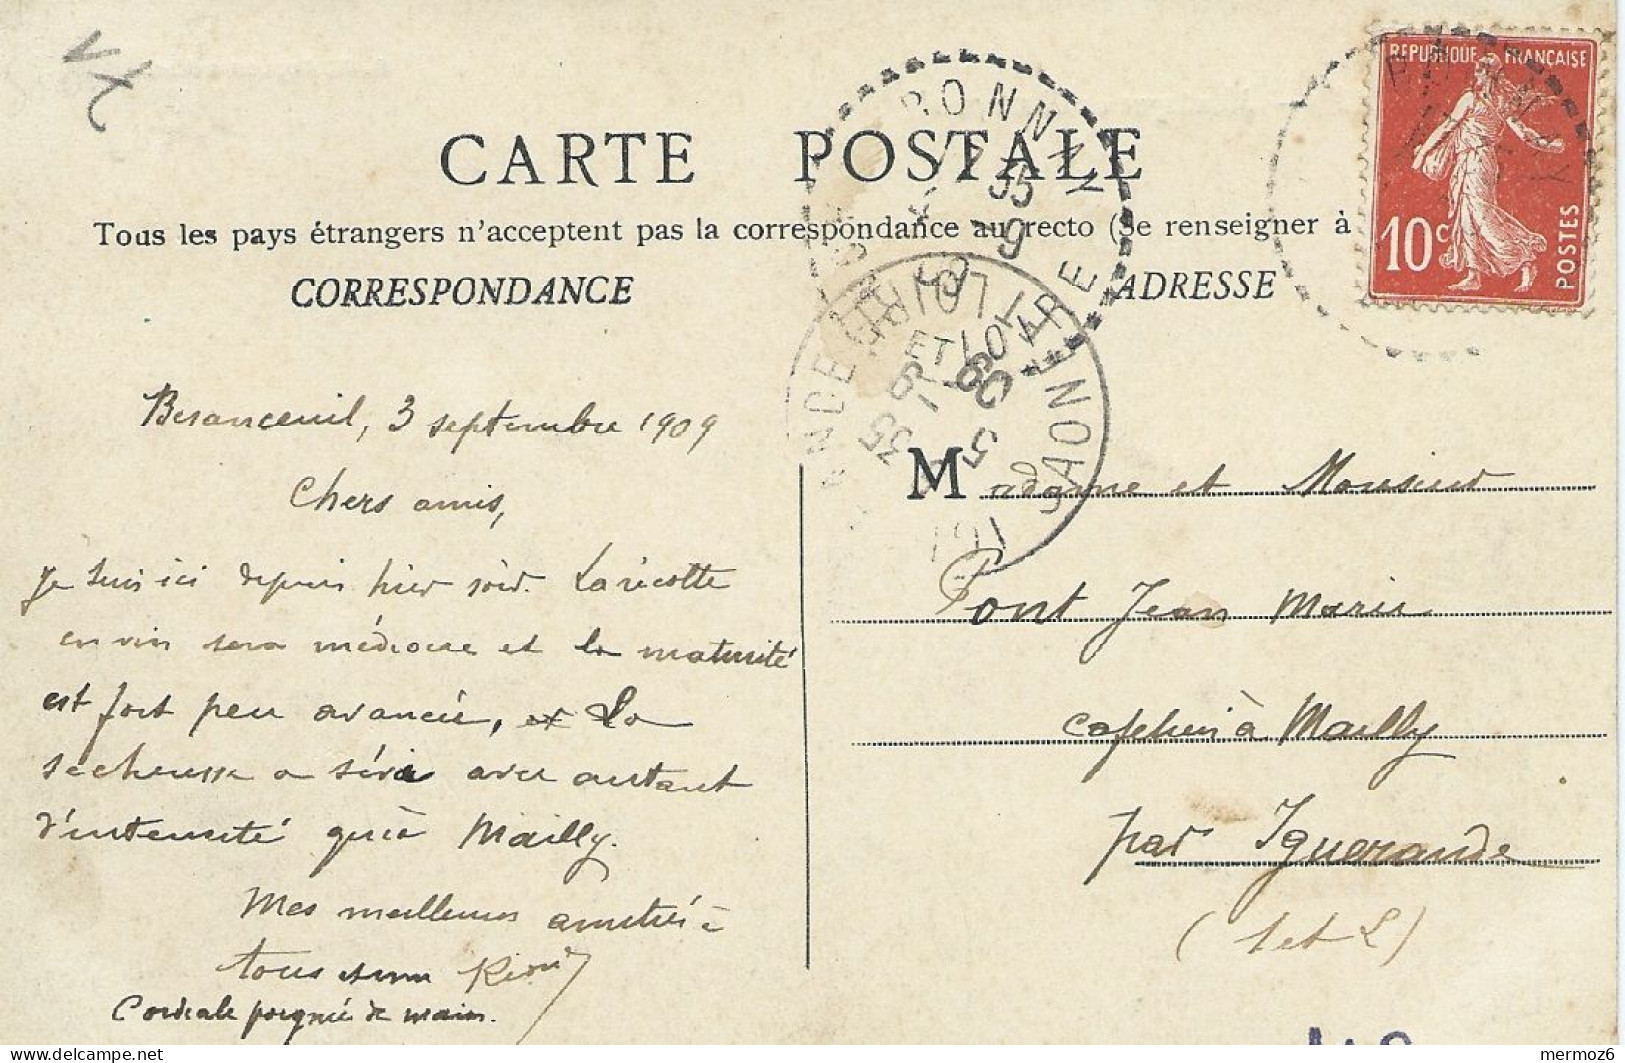 CARTE POSTALE
Tous les pays étrangers n'acceptent pas la correspondance au recto (Se renseigner à
CORRESPONDANCE
ADRESSE
REPUBLIQUE FRANÇAISE
10c
POSTES
Besanceuil, 3 septembre 1909
Chers amis,
Je suis ici depuis hier soir. La récolte
en vin sera médiocre et la maturité
est fort peu avancée, et la
sécheresse a sévi avec autant
d'intensité qu'à Mailly.
Mes meilleures amitiés à
tous
Cordiale poignée de main.
Madame et Monsieur
Pont Jean Marie
à Mailly
par Iguerande
(S et L)
SAONE ET LOIRE
mermoz6